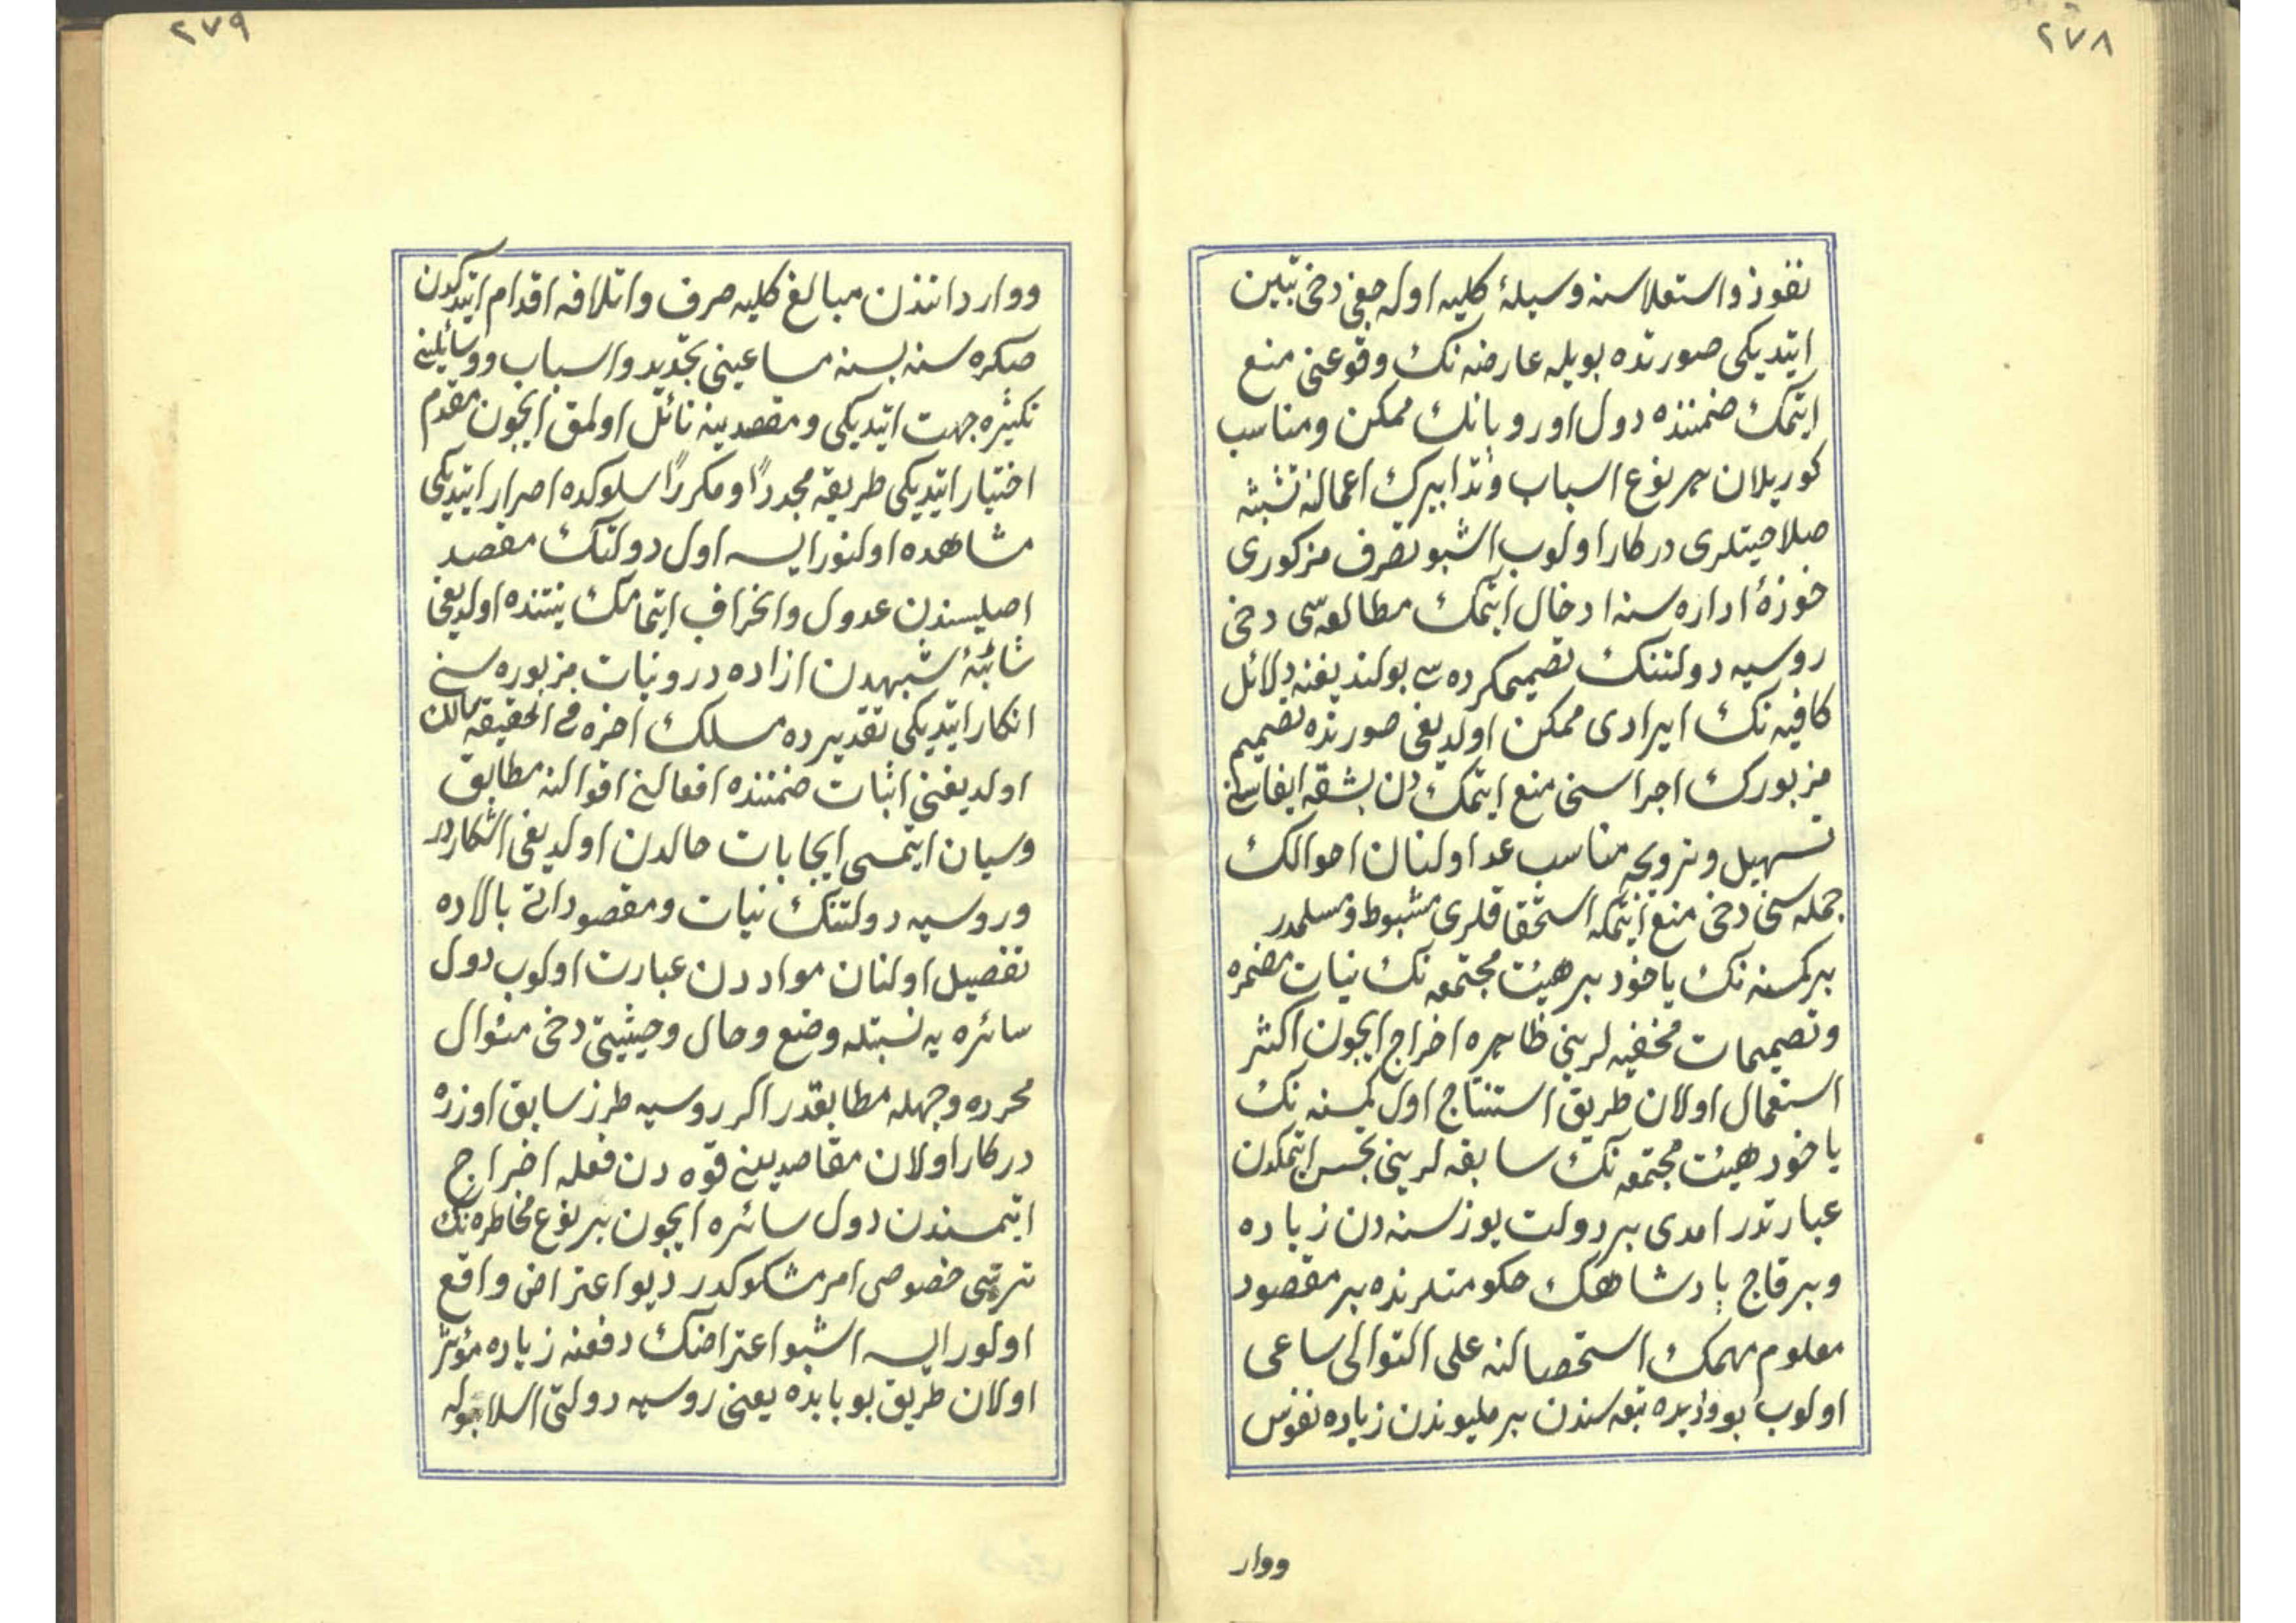 ٢٧٨
نفوذ واستعلاسنه وسیلهٔ کلیه اوله جغی دخی تبین
ایتدیکی صورتده بویله عارضه نک وقوعنی منع
ایتمک ضمننده دول اوروپانک ممکن ومناسب
کوریلان هر نوع اسباب وتدابیرک اعمالنه تشبثه
صلاحیتلری درکار اولوب اشبو تصرف مزکوری
حوزهٔ اداره سنه ادخال ایتمک مطالعه سی دخی
روسیه دولتنک تصمیمکرده سی بولندیغنه دلائل
کافیه نک ایرادی ممکن اولدیغی صورتده تصمیم
مزبورک اجراسنی منع ایتمک دن بشقه ایفاسنی
تسهیل وترویجه مناسب عد اولنان احوالک
جمله سنی دخی منع ایتمکه استحقاقلری مثبوط ومسلمدر
بر کمسنه نک یاخود بر هیئت مجتمعه نک نیات مضمره
وتصمیمات مخفیه لرینی ظاهره اخراج ایچون اکثر
استعمال اولان طریق استنتاج اول کمسنه نک
یاخود هیئت مجتمعه نک سابقه لرینی تجسس ایتمکدن
عبارتدر امدی بر دولت یوز سنه دن زیاده
وبر قاچ پادشاهک حکومتلرنده بر مقصود
معلوم مهمک استحصالنه علی التوالی ساعی
اولوب بو وادیده تبعه سندن بر ملیوندن زیاده نفوس
ووار
٢٧٩
ووارداتندن مبالغ کلیه صرف واتلافه اقدام ایتدکدن
صکره سنه بسنه مساعینی تجدید واسباب ووسائلینی
تکثیره جهت ایتدیکی ومقصدینه نائل اولمق ایچون مقدم
اختیار ایتدیکی طریقه مجدداً ومکرراً سلوکده اصرار ایتدیکی
مشاهده اولنور ایسه اول دولتک مقصد
اصلیسندن عدول وانحراف ایتمامک نیتنده اولدیغی
شائبهٔ شبهدن ازاده در ونیات مزبوره سنی
انکار ایتدیکی تقدیرده مسلک اخره فی الحقیقه سالک
اولدیغنی اثبات ضمننده افعالنی اقوالنه مطابق
وسیان ایتمسی ایجابات حالدن اولدیغی اشکاردر
وروسیه دولتنک نیات ومقصوداتی بالاده
تفصیل اولنان مواددن عبارت اولوب دول
سائره یه نسبتله وضع وحال وحیثیتی دخی منوال
محرره وجهله مطابقدر اکر روسیه طرز سابق اوزره
درکار اولان مقاصدینی قوه دن فعله اخراج
ایتمسندن دول سائره ایچون بر نوع مخاطره نک
ترتبی خصوصی امر مشکوکدر دیو اعتراض واقع
اولور ایسه اشبو اعتراضک دفعنه زیاده مؤثر
اولان طریق بو بابده یعنی روسیه دولتی